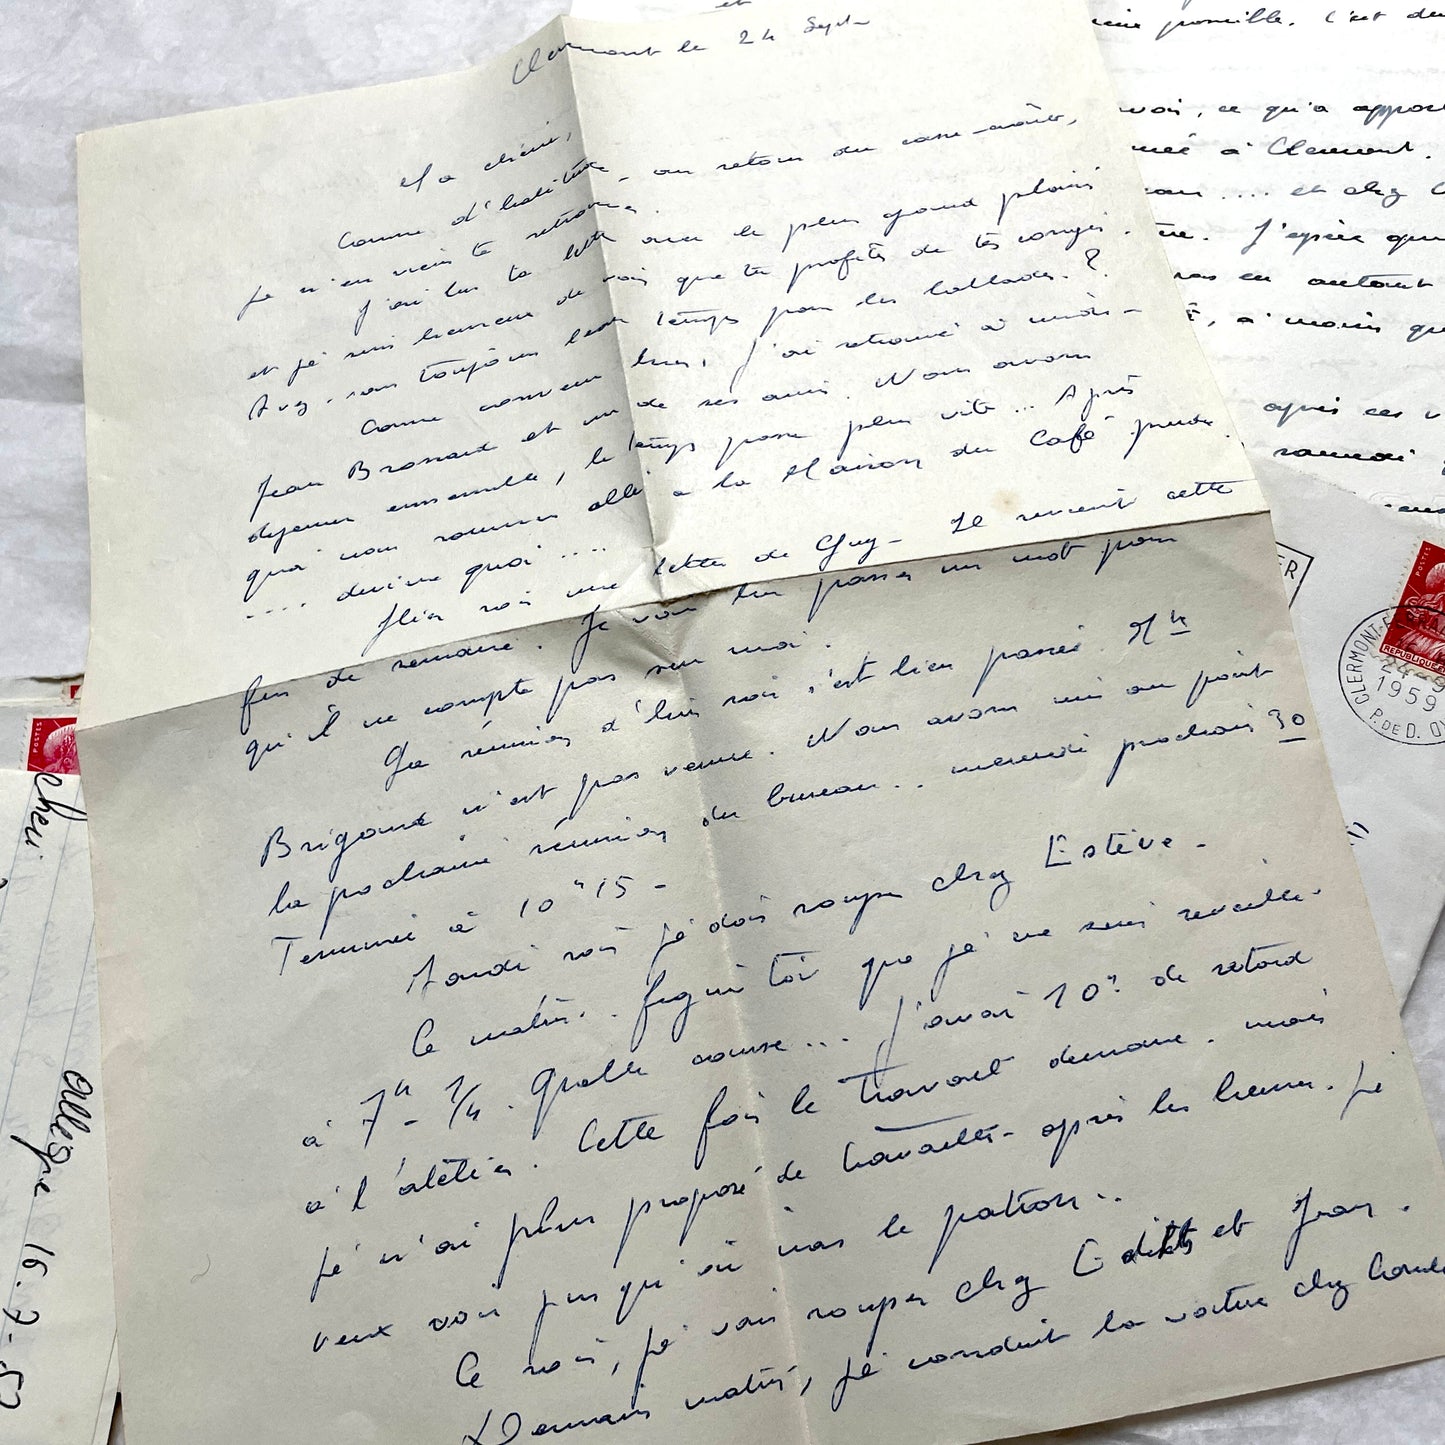 Clermont le 24 Sept
Ma chérie,
Comme d'habitude - au retour du casse-croûte,
je m'en viens te retrouver.
J'ai lu ta lettre avec le plus grand plaisir
et je suis heureux de vois que tu profites de tes congés.
Avez-vous toujours beau temps pour les ballades.?
Comme convenu hier, J'ai retrouvé à midi-
Jean Brossard et un de ses amis. Nous avons
déjeuner ensemble, le temps passe plus vite... Après
quoi nous sommes allé à la Maison du Café prendre
.... devine quoi ....
Hier soir une lettre de Guy- Il revient cette
fin de semaine. Je vais lui passer un mot pour
qu'il ne compte pas sur moi.
La réunion d'hier soir s'est bien passée. Mr
Brigoux n'est pas venu. Nous avons mis au point
la prochaine réunion du bureau.. mercredi prochain 30
Terminée à 10h15-
Lundi soir je dois souper chez Estève-
Ce matin.. figure toi que je me suis réveillé-
à 7h-1/4. Quelle course... J'avais 10" de retard
à l'atelier. Cette fois le travail demande. mais
je n'ai plus proposé de travailler- après les heures. je
veux voir jusqu'où iras le patron..
Ce soir, je vais souper chez Edith et Jean.
Demain matin, je conduit la voiture chez
ière possible. C'est de
voir, ce qu'a appor
née à Clermont.
.... et chez
J'espère que
en autant
, à moins que
après ces v
samedi
POSTES
REPUBLIQUE
CLERMONT-F
24-9
1959
P. DE D.
ER
POSTES
cheri
allègre 16.7-